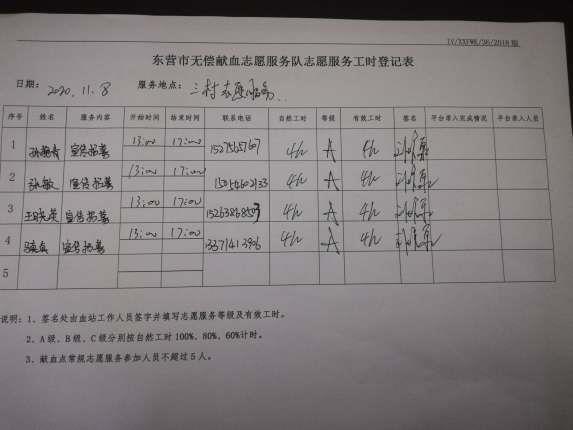 IV/XXFWK/36/2018版
东营市无偿献血志愿服务队志愿服务工时登记表
日期: 2020.11.8 服务地点: 三村志愿服务
序号 姓名 服务内容 开始时间 结束时间 联系电话 自然工时 等级 有效工时 签名 平台录入完成情况 平台录入人员
1 宣传招募 13:00 17:00 15275657607 4h A 4h
2 张敏 宣传招募 13:00 17:00 4h A 4h
3 宣传招募 13:00 17:00 15263868503 4h A 4h
4 宣传招募 13:00 17:00 13371413906 4h A 4h
5
说明: 1、签名处由血站工作人员签字并填写志愿服务等级及有效工时。
2、A级、B级、C级分别按自然工时100%、80%、60%计时。
3、献血点常规志愿服务参加人员不超过5人。